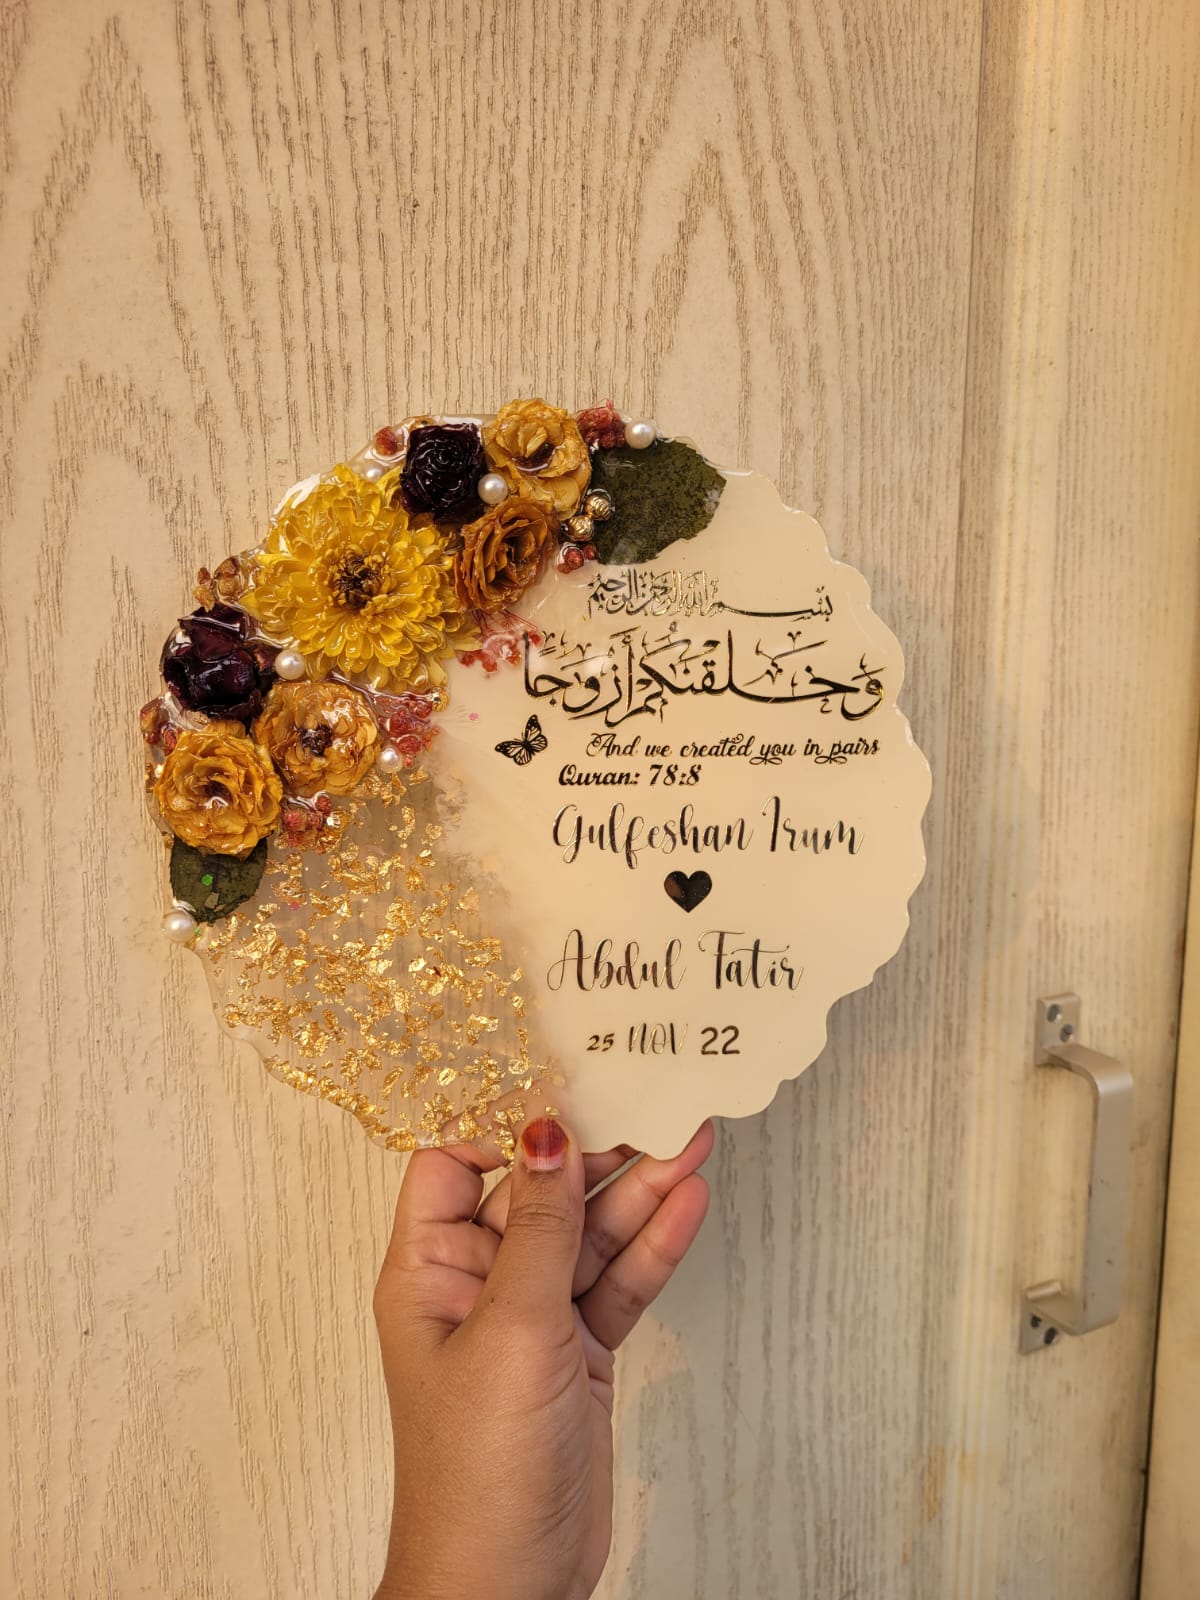 بسم الله الرحمن الرحيم
وَخَلَقْنَكُمْ أَزْوَجًا
And we created you in pairs
Quran: 78:8
Gulfeshan Irum
Abdul Fatir
25 NOV 22